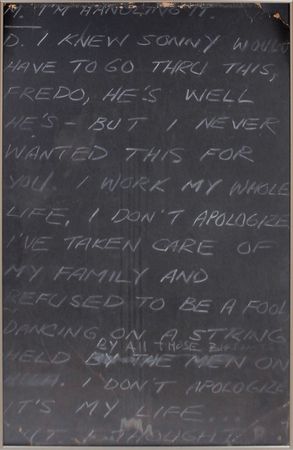 M. I'M HANDLING IT.
D. I KNEW SONNY WOULD
HAVE TO GO THRU THIS,
FREDO, HE'S WELL
HE'S - BUT I NEVER
WANTED THIS FOR
YOU. I WORK MY WHOLE
LIFE, I DON'T APOLOGIZE
I'VE TAKEN CARE OF
MY FAMILY AND
REFUSED TO BE A FOOL
DANCING ON A STRING
BY All THOSE
HELD BY THE MEN ON
I DON'T APOLOGIZE
IT'S MY LIFE
BUT I THOUGHT